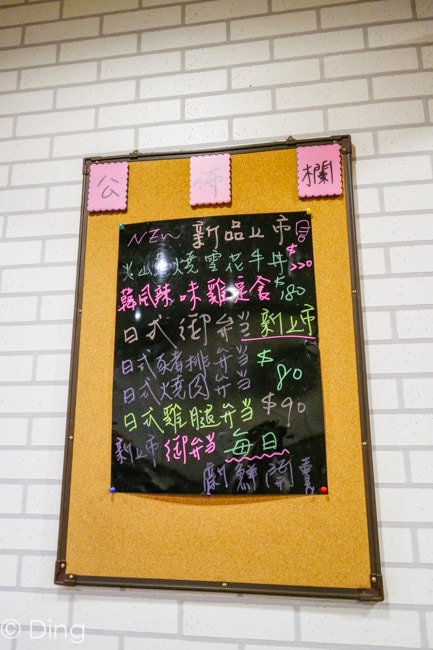 公佈欄
NEW 新品上市
火山燒雪花牛丼 $220
韓風辣味雞定食 $180
日式御弁当 新上市
日式豬排弁当 $80
日式燒肉弁当
日式雞腿弁当 $90
新上市 御弁当 每日
新鮮開賣
© Ding